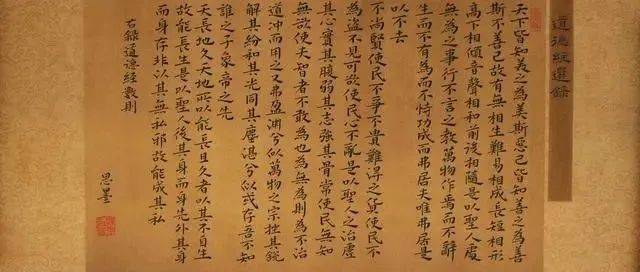 道德經選錄
天下皆知美之為美斯惡已皆知善之為善
斯不善已故有無相生難易相成長短相形
高下相傾音聲相和前後相隨是以聖人處
無為之事行不言之教萬物作焉而不辭
生而不有為而不恃功成而弗居夫唯弗居是
以不去
不尚賢使民不爭不貴難得之貨使民不
為盜不見可欲使民心不亂是以聖人之治虛
其心實其腹弱其志強其骨常使民無知
無欲使夫智者不敢為也為無為則無不治
道沖而用之又弗盈淵兮似萬物之宗挫其銳
解其紛和其光同其塵湛兮似或存吾不知
誰之子象帝之先
天長地久天地所以能長且久者以其不自生
故能長生是以聖人後其身而身先外其身
而身存非以其無私邪故能成其私
右錄道德經數則
思墨